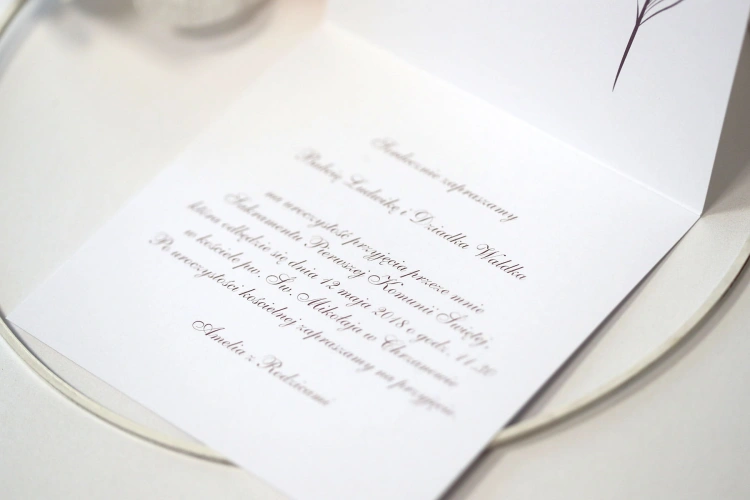 Serdecznie zapraszamy
Babcię Ludwikę i Dziadka Waldka
na uroczystość przyjęcia przeze mnie
Sakramentu Pierwszej Komunii Świętej,
która odbędzie się dnia 12 maja 2018 o godz. 11:30
w kościele pw. Św. Mikołaja w Chrzanowie
Po uroczystości kościelnej zapraszamy na przyjęcie.
Amelia z Rodzicami